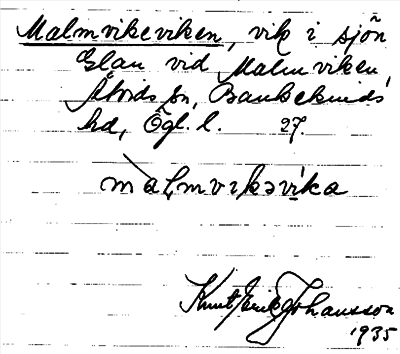 Malmvikeviken, vik i sjön
Glan vid Malmviken,
Åtvids sn, Bankekinds
hd, Ögl. l. 27.
malmvikəvika
Knut Erik Johansson
1935